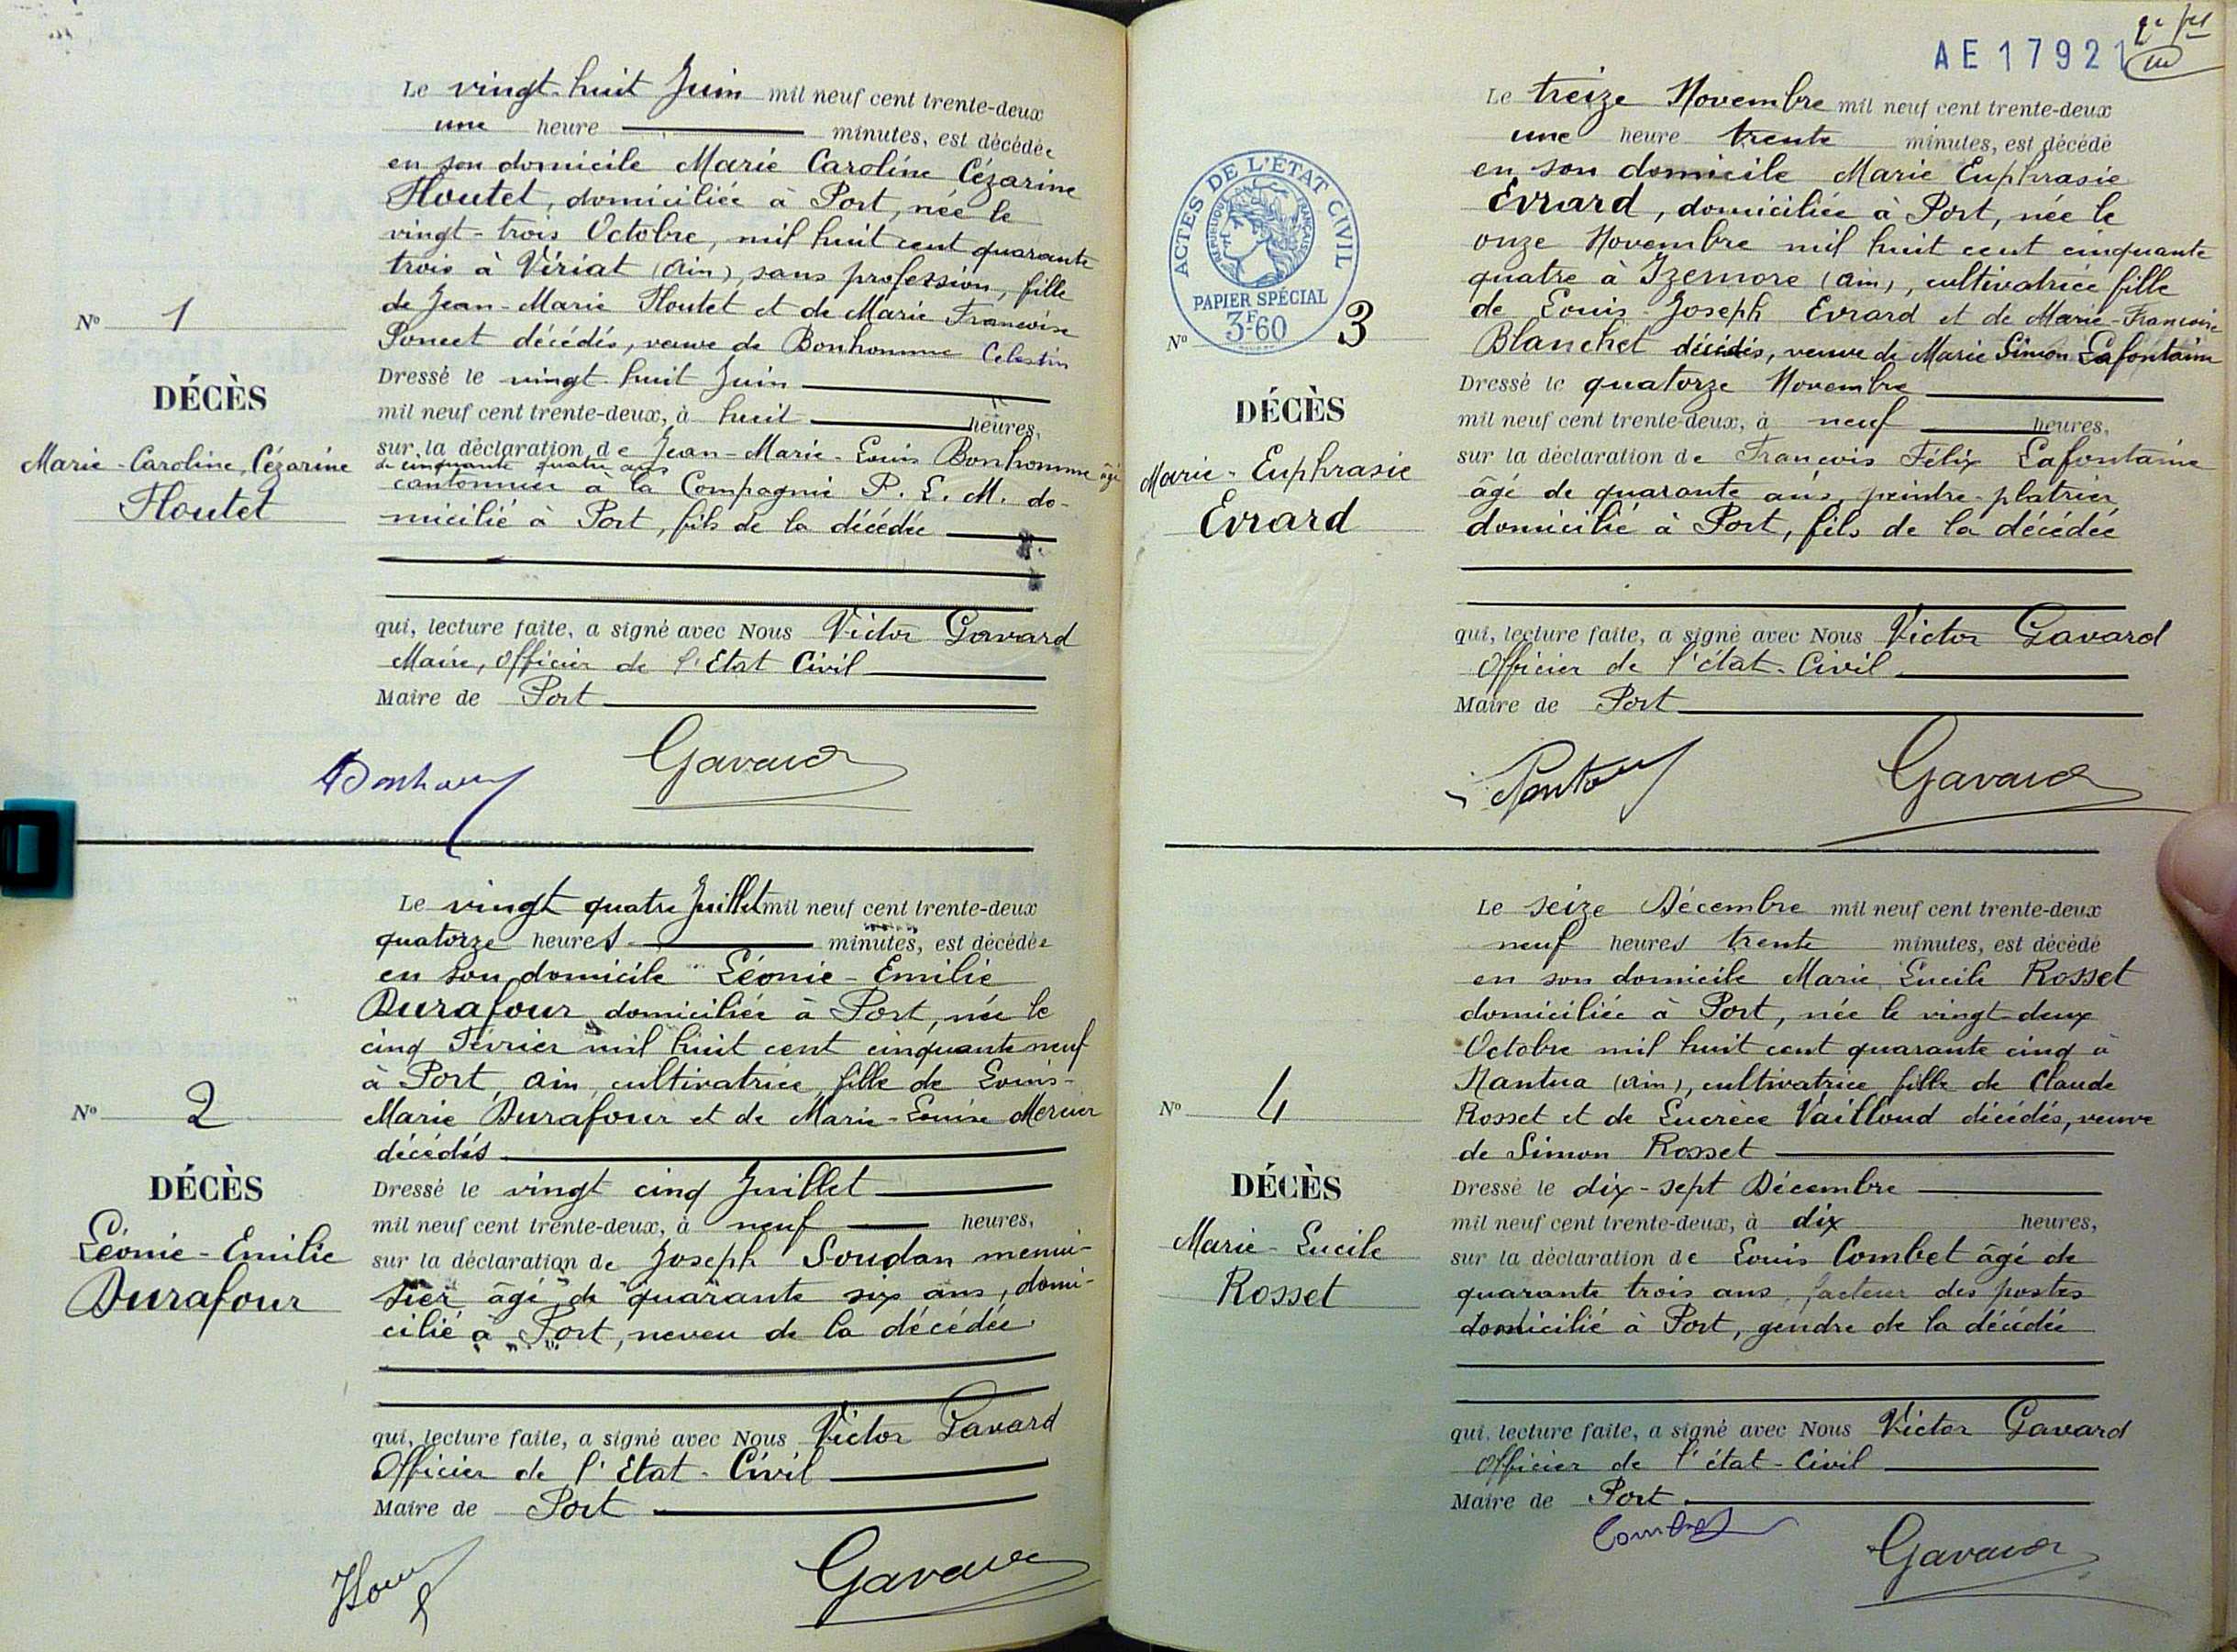 Le vingt-huit Juin mil neuf cent trente-deux
une heure minutes, est décédée
en son domicile Marie Caroline Cézarine
Floutet, domiciliée à Port, née le
vingt-trois Octobre, mil huit cent quarante
trois à Viriat (Ain), sans profession, fille
de Jean-Marie Floutet et de Marie Françoise
Poncet décédés, veuve de Bonhomme Celestin
N° 1
DÉCÈS
Marie-Caroline, Cézarine
Floutet
Dressé le vingt-huit Juin
mil neuf cent trente-deux, à huit heures,
sur la déclaration de Jean-Marie-Louis Bonhomme âgé
de cinquante quatre ans
cantonnier à la Compagnie P. L. M. do-
micilié à Port, fils de la décédée
qui, lecture faite, a signé avec Nous Victor Gavard
Maire, Officier de l'Etat Civil
Maire de Port
Gavard
Le vingt quatre Juillet mil neuf cent trente-deux
quatorze heures minutes, est décédée
en son domicile Léonie-Emilie
Durafour domiciliée à Port, née le
cinq Février mil huit cent cinquante neuf
à Port, Ain, cultivatrice, fille de Louis-
Marie Durafour et de Marie-Louise Mercier
décédés
N° 2
DÉCÈS
Léonie-Emilie
Durafour
Dressé le vingt cinq Juillet
mil neuf cent trente-deux, à neuf heures,
sur la déclaration de Joseph Soudan menui-
sier âgé de quarante six ans, domi-
cilié à Port, neveu de la décédée.
qui, lecture faite, a signé avec Nous Victor Gavard
Officier de l'Etat-Civil
Maire de Port
Gavard
AE 17921
Le treize Novembre mil neuf cent trente-deux
une heure trente minutes, est décédé
en son domicile Marie Euphrasie
Evrard, domiciliée à Port, née le
onze Novembre mil huit cent cinquante
quatre à Izernore (Ain), cultivatrice fille
de Louis-Joseph Evrard et de Marie-Françoise
Blanchet décédés, veuve de Marie Simon Lafontaine
ACTES DE L'ÉTAT CIVIL
RÉPUBLIQUE FRANÇAISE
PAPIER SPÉCIAL
3F60
N° 3
DÉCÈS
Marie-Euphrasie
Evrard
Dressé le quatorze Novembre
mil neuf cent trente-deux, à neuf heures,
sur la déclaration de François Félix Lafontaine
âgé de quarante ans, peintre-platrier,
domicilié à Port, fils de la décédée
qui, lecture faite, a signé avec Nous Victor Gavard
Officier de l'état-Civil
Maire de Port
Gavard
Le seize Décembre mil neuf cent trente-deux
neuf heures trente minutes, est décédé
en son domicile Marie Lucile Rosset
domiciliée à Port, née le vingt-deux
Octobre mil huit cent quarante cinq à
Nantua (Ain), cultivatrice fille de Claude
Rosset et de Lucrèce Vailloud décédés, veuve
de Simon Rosset
N° 4
DÉCÈS
Marie-Lucile
Rosset
Dressé le dix-sept Décembre
mil neuf cent trente-deux, à dix heures,
sur la déclaration de Louis Combet âgé de
quarante trois ans, facteur des postes
domicilié à Port, gendre de la décédée
qui, lecture faite, a signé avec Nous Victor Gavard
Officier de l'état-Civil
Maire de Port
Combet
Gavard